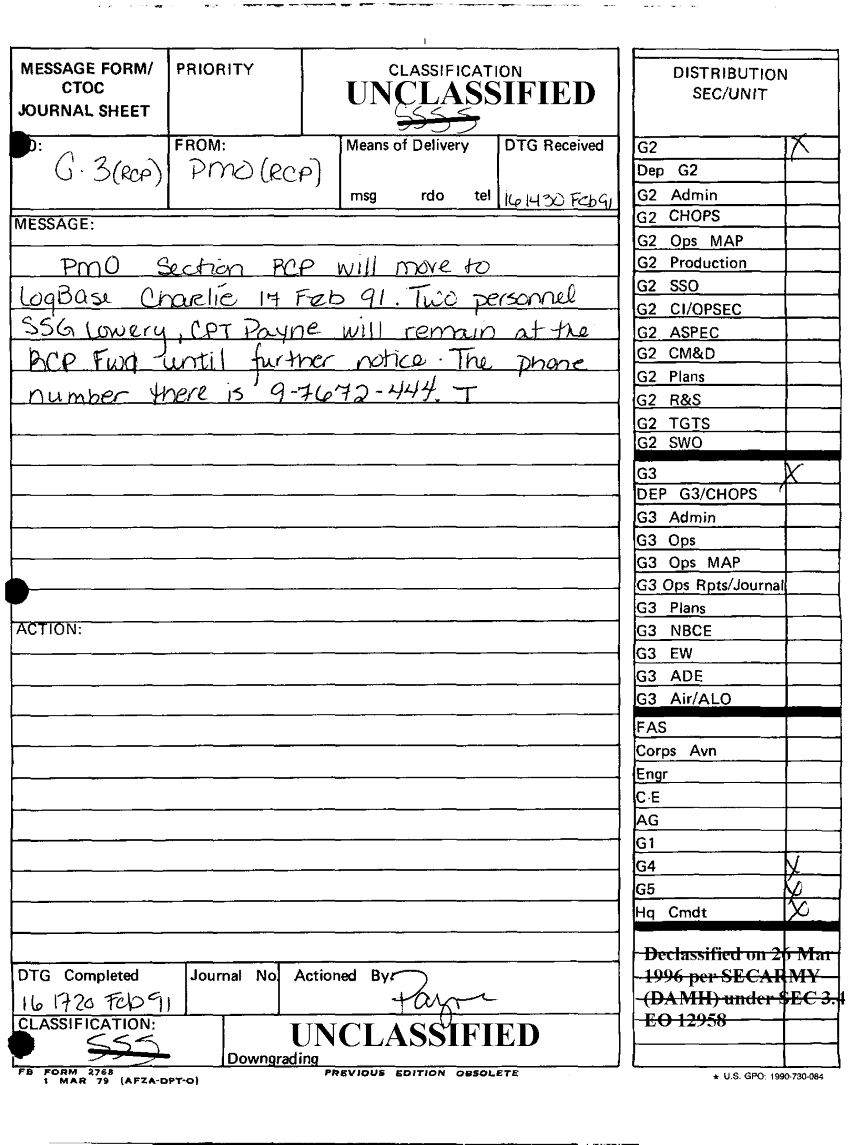 MESSAGE FORM/
CTOC
JOURNAL SHEET
PRIORITY
CLASSIFICATION
UNCLASSIFIED
SSSS
TO:
G-3 (RCP)
FROM:
PMO (RCP)
Means of Delivery
msg rdo tel
DTG Received
161430 Feb 91
MESSAGE:
PMO Section RCP will move to
LogBase Charelie 17 Feb 91. Two personnel
SSG Lowery, CPT Payne will remain at the
RCP Fwd until further notice. The phone
number there is 9-7672-444. T
ACTION:
DTG Completed
161720 Feb 91
Journal No.
Actioned By:
Payne
CLASSIFICATION:
SSS
UNCLASSIFIED
Downgrading
FB FORM 2768
1 MAR 79 (AFZA-DPT-O)
PREVIOUS EDITION OBSOLETE
DISTRIBUTION
SEC/UNIT
G2 X
Dep G2
G2 Admin
G2 CHOPS
G2 Ops MAP
G2 Production
G2 SSO
G2 CI/OPSEC
G2 ASPEC
G2 CM&D
G2 Plans
G2 R&S
G2 TGTS
G2 SWO
G3 X
DEP G3/CHOPS
G3 Admin
G3 Ops
G3 Ops MAP
G3 Ops Rpts/Journal
G3 Plans
G3 NBCE
G3 EW
G3 ADE
G3 Air/ALO
FAS
Corps Avn
Engr
C-E
AG
G1
G4 X
G5 X
Hq Cmdt X
Declassified on 26 Mar
1996 per SECARMY
(DAMH) under SEC 3.4
EO 12958
* U.S. GPO: 1990-730-084